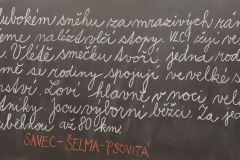 lubokém sněhu za mrazivých rán
eme nalézt vlčí stopy. Vlci žijí ve
. V létě smečku tvoří jedna rod
mě se rodiny spojují ve velké s
nství. Loví hlavně v noci, vel
tníky. jsou výborní běžci. Za jed
uběhnou až 80 km.
SAVEC - ŠELMA - PSOVITÁ